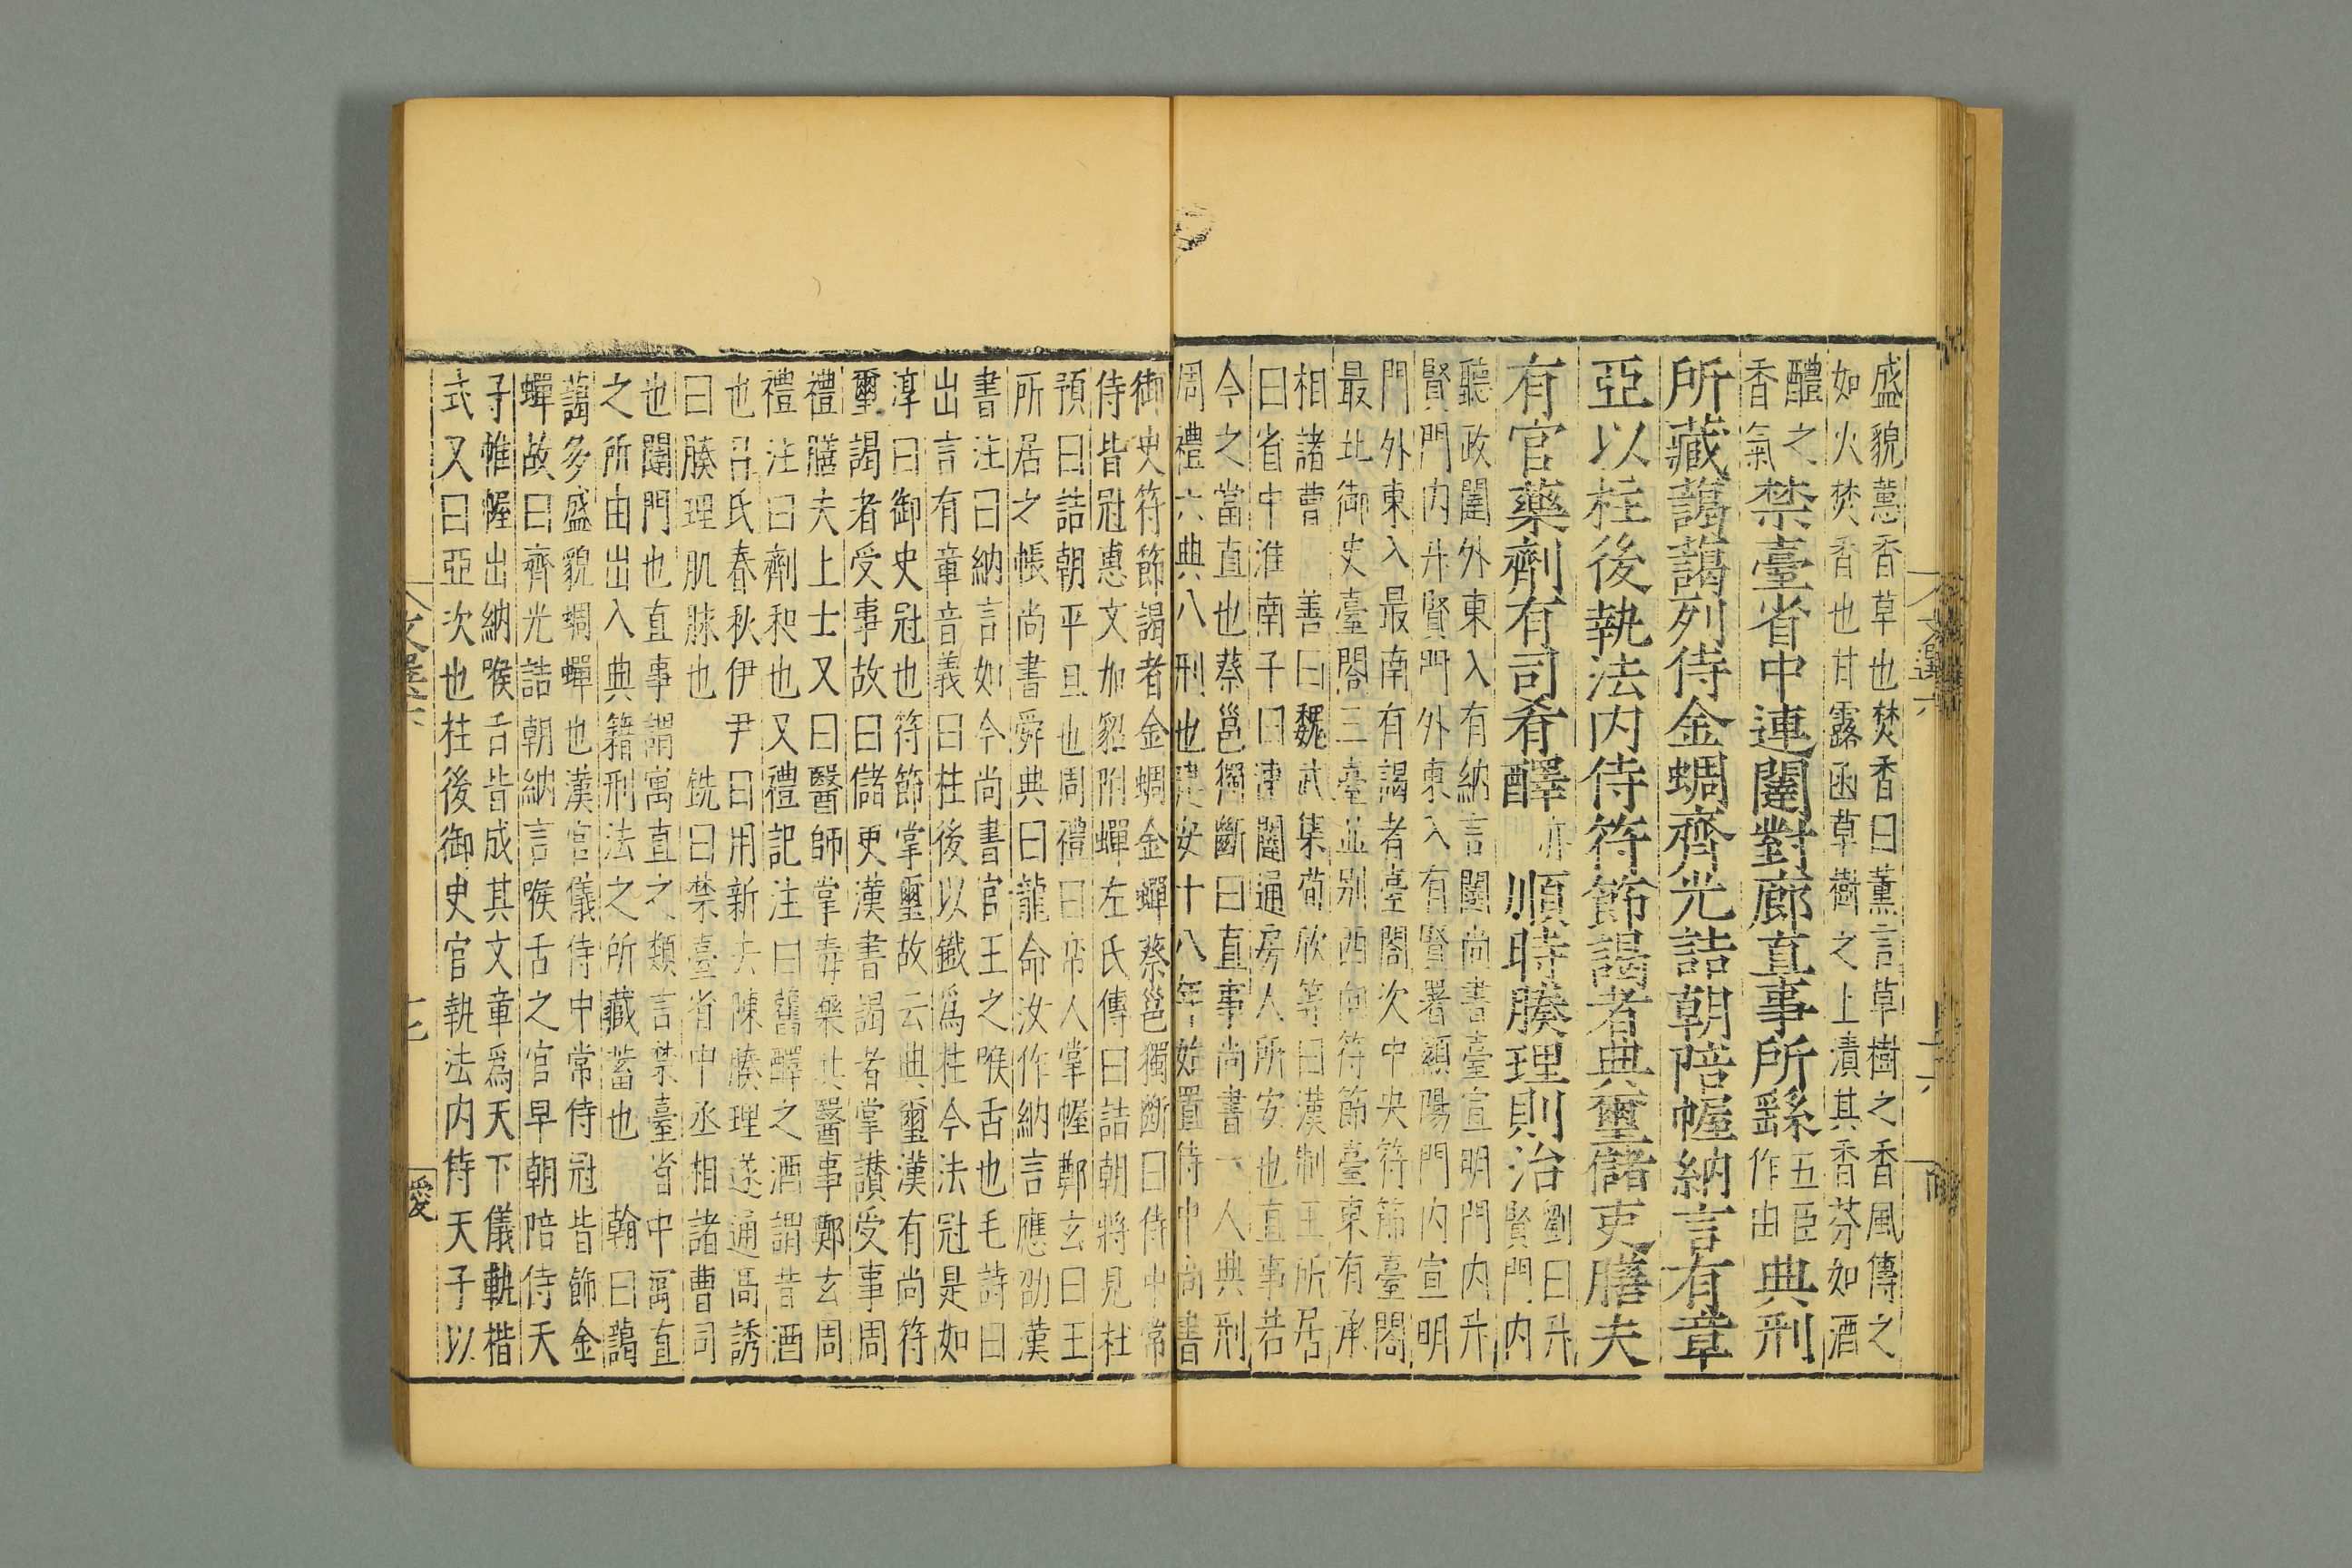 盛貌蕙香草也焚香曰薰言草樹之香風傳之
如火焚香也甘露函草樹之上漬其香芬如酒
醴之
香氣
禁臺省中連闥對廊直事所繇
五臣
作由
典刑
所藏藹藹列侍金蜩齊光詰朝陪幄納言有章
亞以柱後執法内侍符節謁者典璽儲吏膳夫
有官藥劑有司肴醳
亦
順時腠理則治
劉曰升
賢門内
聽政闥外東入有納言闥尚書臺宣明門内升
賢門内升賢門外東入有賢署顯陽門内宣明
門外東入最南有謁者臺閣次中央符節臺閣
最北御史臺閣三臺並别西向符節臺東有丞
相諸曹　善曰魏武集荀欣等曰漢制王所居
曰省中淮南子曰連闥通房人所安也直事若
今之當直也蔡邕獨斷曰直事尚書一人典刑
周禮六典八刑也建安十八年始置侍中尚書
御史符節謁者金蜩金蟬蔡邕獨斷曰侍中常
侍皆冠惠文加貂附蟬左氏傳曰詰朝將見杜
預曰詰朝平旦也周禮曰帟人掌幄鄭玄曰王
所居之帳尚書舜典曰龍命汝作納言應劭漢
書注曰納言如今尚書官王之喉舌也毛詩曰
出言有章音義曰柱後以鐵爲柱今法冠是如
淳曰御史冠也符節掌璽故云典璽漢有尚符
璽謁者受事故曰儲吏漢書謁者掌讃受事周
禮膳夫上士又曰醫師掌毒藥共醫事鄭玄周
禮注曰劑和也又禮記注曰舊醳之酒謂昔酒
也吕氏春秋伊尹曰用新去陳腠理遂通高誘
曰腠理肌脉也　銑曰禁臺省中丞相諸曹司
也闥門也直事謂寓直之類言禁臺省中寓直
之所由出入典籍刑法之所藏蓄也　翰曰藹
藹多盛貌蜩蟬也漢官儀侍中常侍冠皆飾金
蟬故曰齊光詰朝納言喉舌之官早朝陪侍天
子帷幄出納喉舌皆成其文章爲天下儀軌楷
式又曰亞次也柱後御史官執法内侍天子以